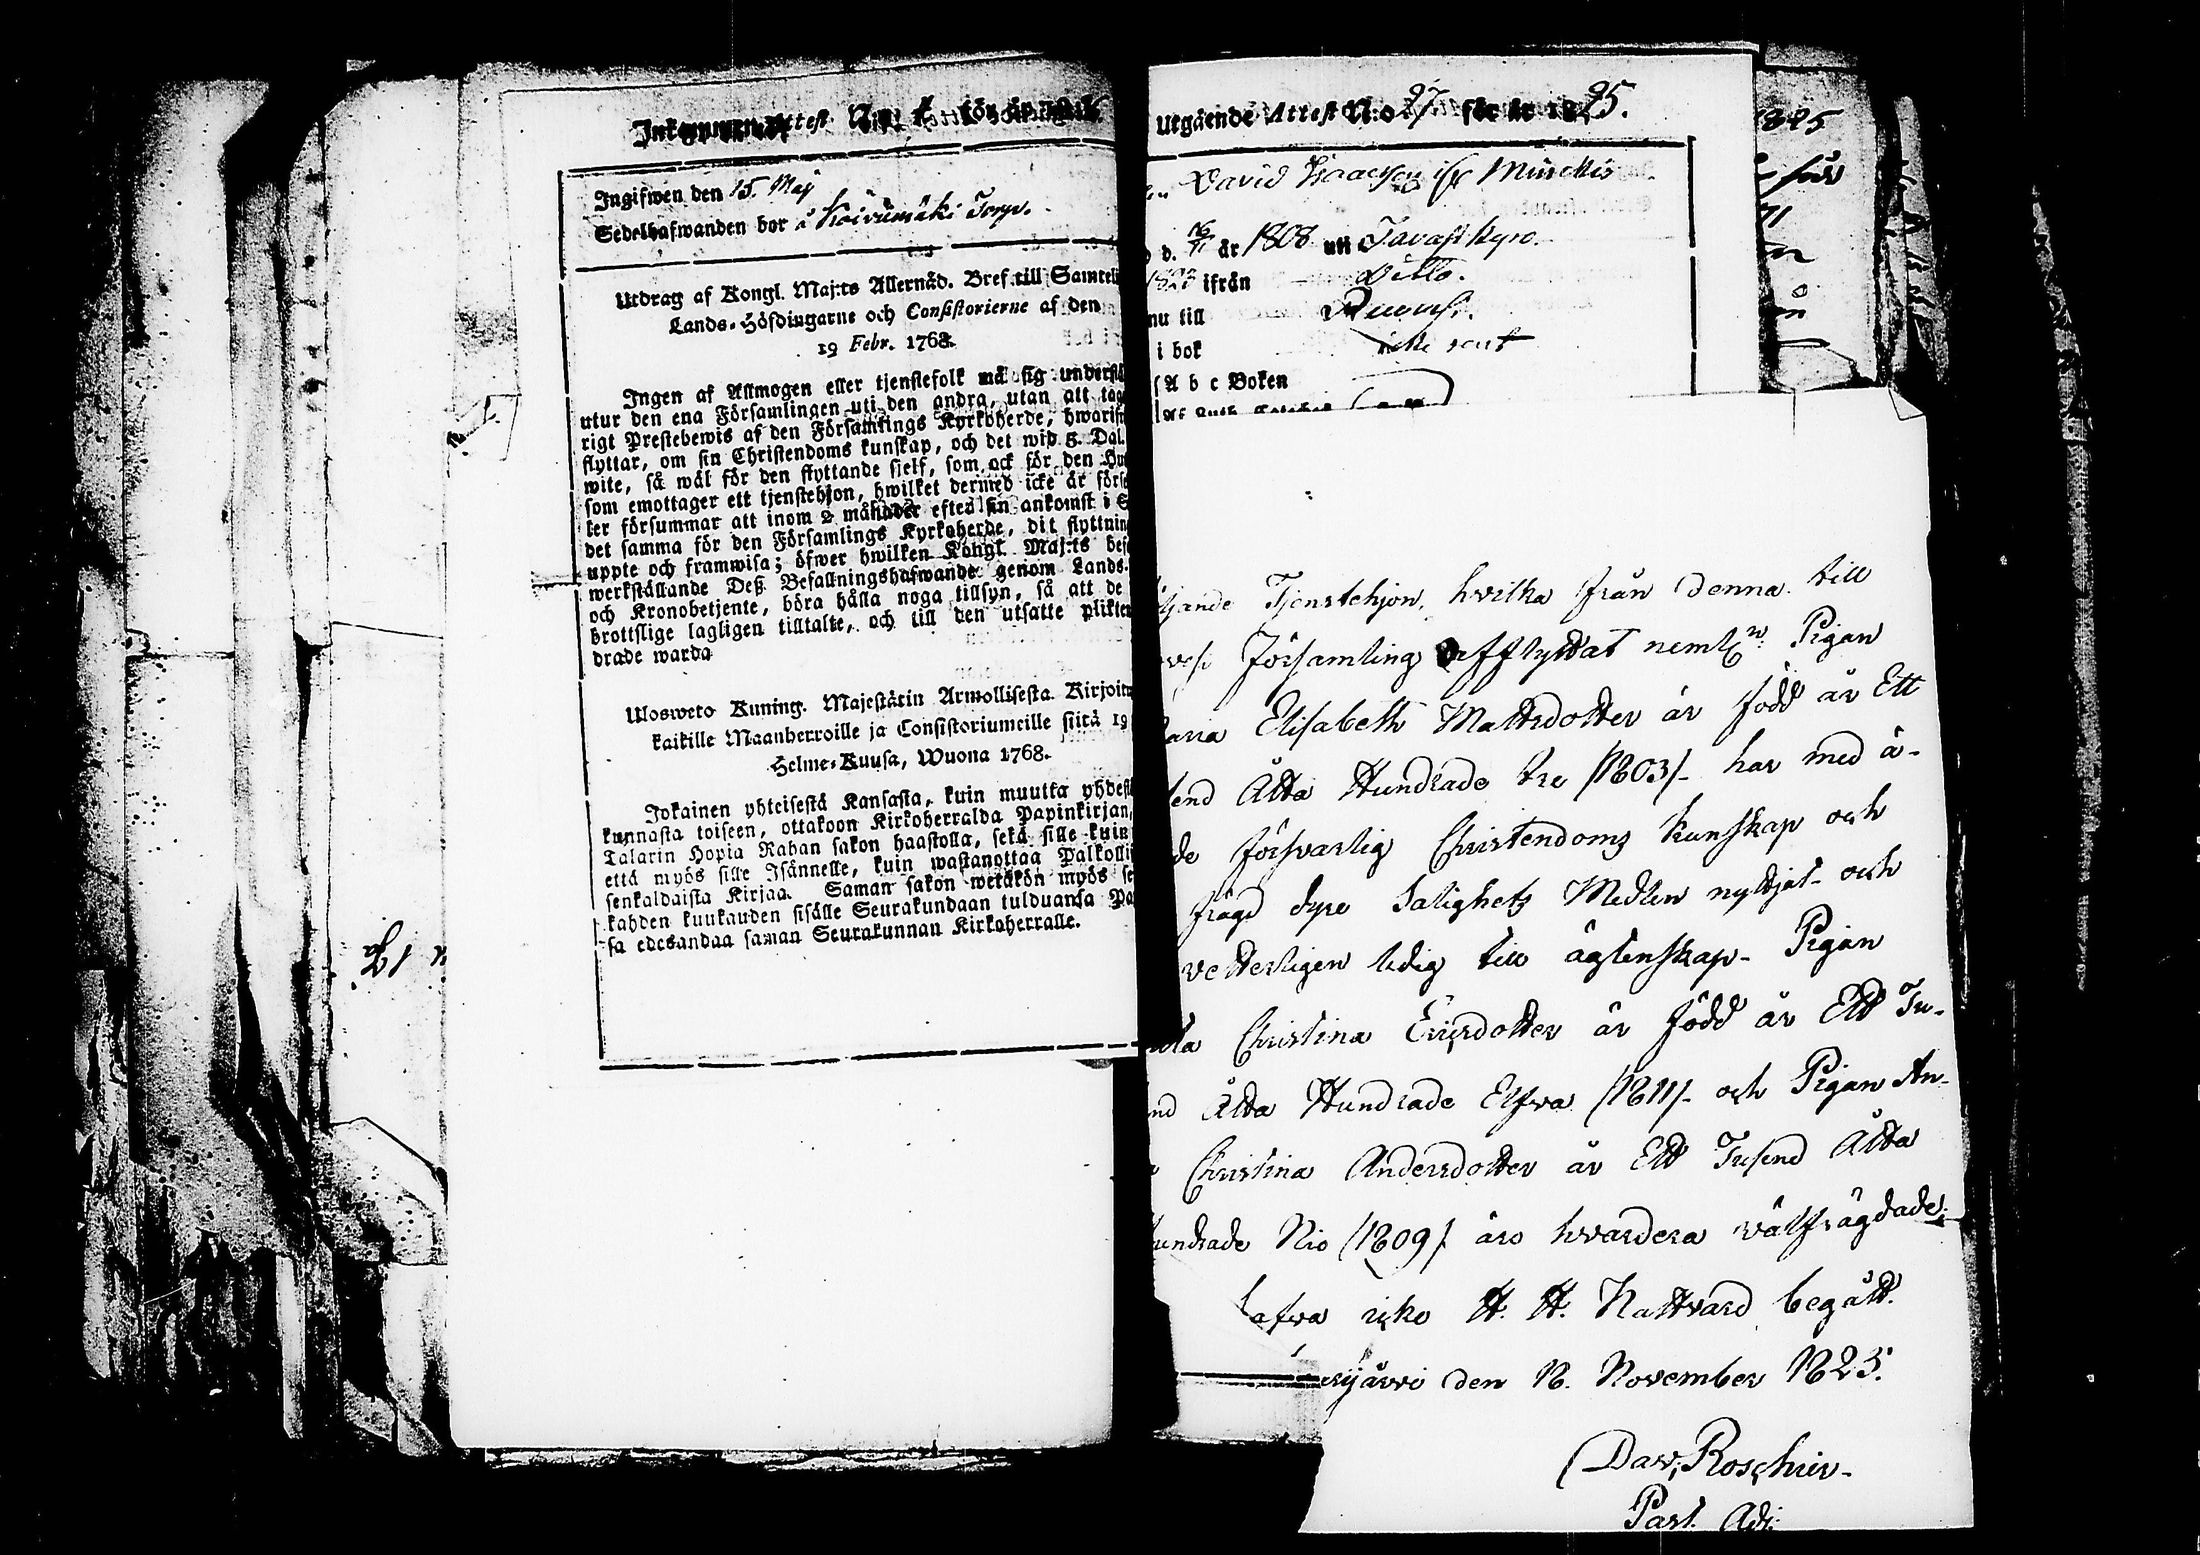 Inkommen Attest N:o för år
Ingifwen den 15. Maj
Sedelhafwanden bor å Koivumäki Torp.
Utdrag af Kongl. Maj:ts Allernåd. Bref till Samteli
Lands-Höfdingarne och Consistorierne af den
19 Febr. 1768.
Ingen af Allmogen eller tjenstefolk må sig understå
utur den ena Församlingen uti den andra, utan att tag
rigt Prestebewis af den Församlings Kyrkoherde, hwarifr
flyttar, om sin Christendoms kunskap, och det wid 5. Dal.
wite, så wäl för den flyttande sielf, som ock för den Hus
som emottager ett tjenstehjon, hwilket dermed icke är förse
ler försummar att inom 2 månader efter sin ankomst i S
det samma för den Församlings Kyrkoherde, dit flyttnin
uppte och framwisa; öfwer hwilken Kongl. Maj:ts bef
werkställande Deß Befallningshafwande genom Lands-
och Kronobetjente, böra hålla noga tillsyn, så att de
brottslige lagligen tilltalte, och till den utsatte plikten
drade warda
Ulosweto Kuning. Majestätin Armollisesta Kirjoitu
kaikille Maanherroille ja Consistoriumeille siitä 19
Helme-Kuusa, Wuona 1768.
Jokainen yhteisestä Kansasta, kuin muutta yhdest
kunnasta toiseen, ottakoon Kirkoherralda Papinkirjan,
Talarin Hopia Rahan sakon haastolla, sekä sille kuin
että myös sille Isännelle, kuin wastanottaa Palkolli
senkaldaista Kirjaa. Saman sakon wetäkön myös se
kahden kuukauden sisälle Seurakundaan tulduansa Pa
sa edesandaa saman Seurakunnan Kirkoherralle.
Utgående Attest N:o 27. för år 1825.
David Isaacsson ifr Murckis
d. 16/11 år 1808 uti Tavastkyro.
ifrån Ditto.
nu till Ruovesi.
i bok icke rent
A b c Boken
ljande Tjenstehjon, hvilka från denna till
vesi Församling afflyttat nemln Pigan
aria Elisabeth Mattsdotter är född år Ett
send Åtta Hundrade tre /1803/- har med ä-
de försvarlig Christendoms kunskap och
frägd dyre Salighets Medlen nyttjat- och
vetterligen ledig till ägtenskap- Pigan
Christina Ericsdotter är född år Ett Tu-
nd Åtta Hundrade Elfva /1811/- och Pigan An-
Christina Andersdotter år Ett Tusend Åtta
undrade Nio /1809/ äro hvardera välfrägdade,
hafva icke H. H. Nattvard begått.
yjärvi den 12. November 1825.
Dav. Roschier-
Past. Adj:
1825